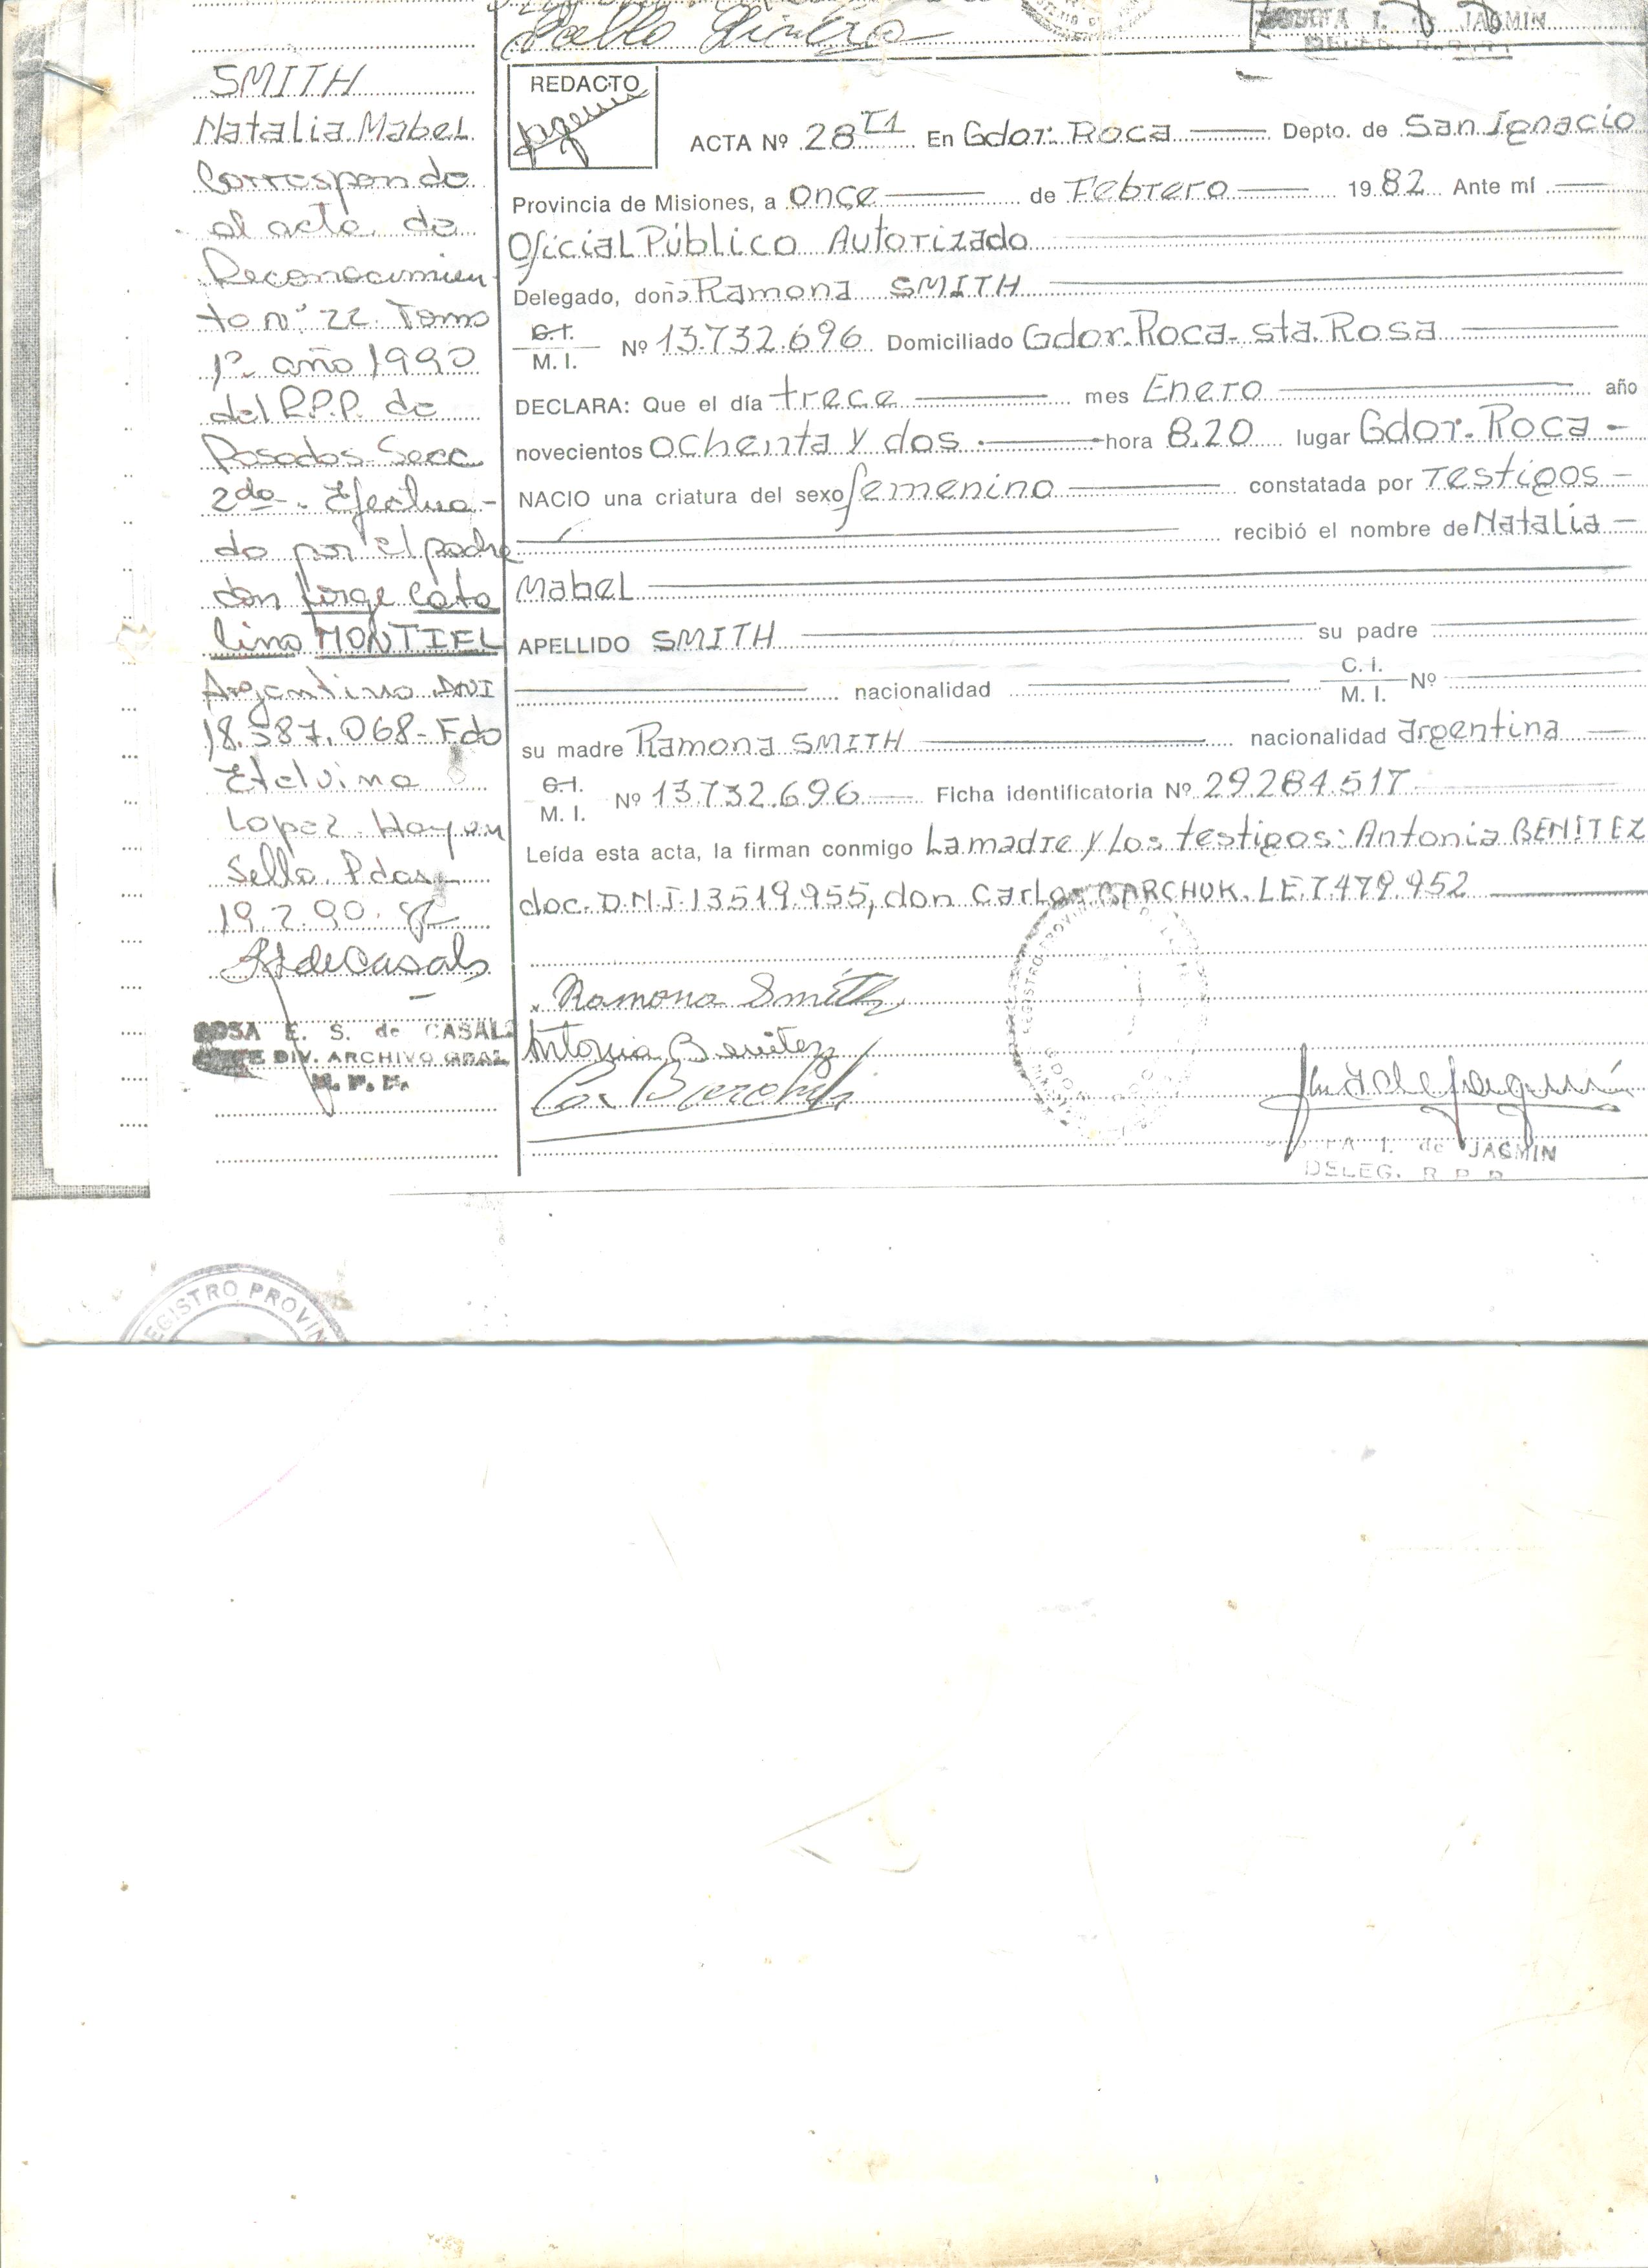 Pablo
I. de JASMIN
DELEG.
SMITH
Natalia Mabel
Corresponde
al acta de
Reconocimien
to nº 22 Tomo
1º año 1990
del R.P.P. de
Posadas Secc
2da. Efectua-
do por el padre
don Jorge Cata
lino MONTIEL
Argentino DNI
18.587.068- Fdo
Etelvina
Lopez
Sello Pdas
19.2.90.
R de Casals
ROSA E. S. de CASALS
JEFE DIV. ARCHIVO GRAL
R. P. P.
REDACTO
ACTA Nº 28 T1 En Gdor. Roca Depto. de San Ignacio
Provincia de Misiones, a once de Febrero 1982 Ante mí
Oficial Público Autorizado
Delegado, doña Ramona SMITH
C.I.
M. I. Nº 13.732.696 Domiciliado Gdor. Roca- sta. Rosa
DECLARA: Que el día trece mes Enero año
novecientos ochenta y dos. hora 8.20 lugar Gdor. Roca -
NACIO una criatura del sexo femenino constatada por Testigos -
recibió el nombre de Natalia -
Mabel
APELLIDO SMITH su padre
nacionalidad C. I.
M. I. Nº
su madre Ramona SMITH nacionalidad argentina
C.I.
M. I. Nº 13.732.696 Ficha identificatoria Nº 29.284.517
Leída esta acta, la firman conmigo La madre y Los testigos: Antonia BENITEZ
doc. D.N.I. 13519.955, don Carlos BARCHUK. LE 7.479.952
Ramona Smith
Antonia Benitez
I. de JASMIN
DELEG. R P P
REGISTRO PROVIN